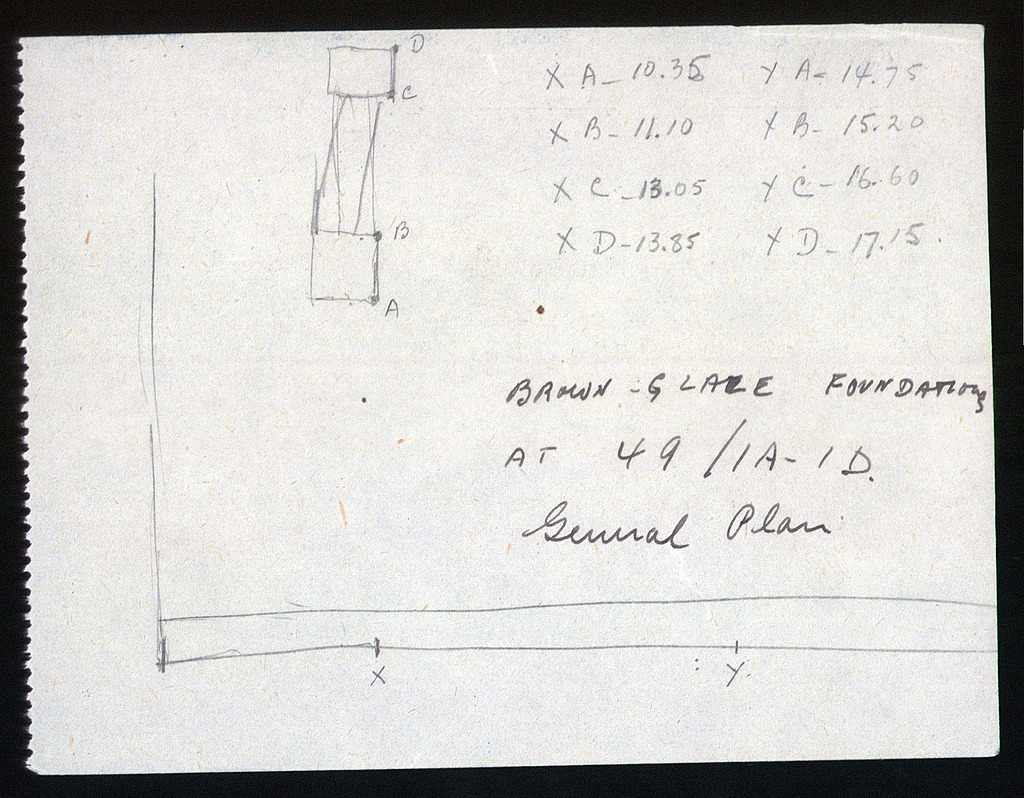 D
C
B
A
X A - 10.35 Y A - 14.75
X B - 11.10 Y B - 15.20
X C - 13.05 Y C - 16.60
X D - 13.85 Y D - 17.15.
BROWN - GLAZE FOUNDATIONS
AT 49 / 1A - 1D.
General Plan
X Y